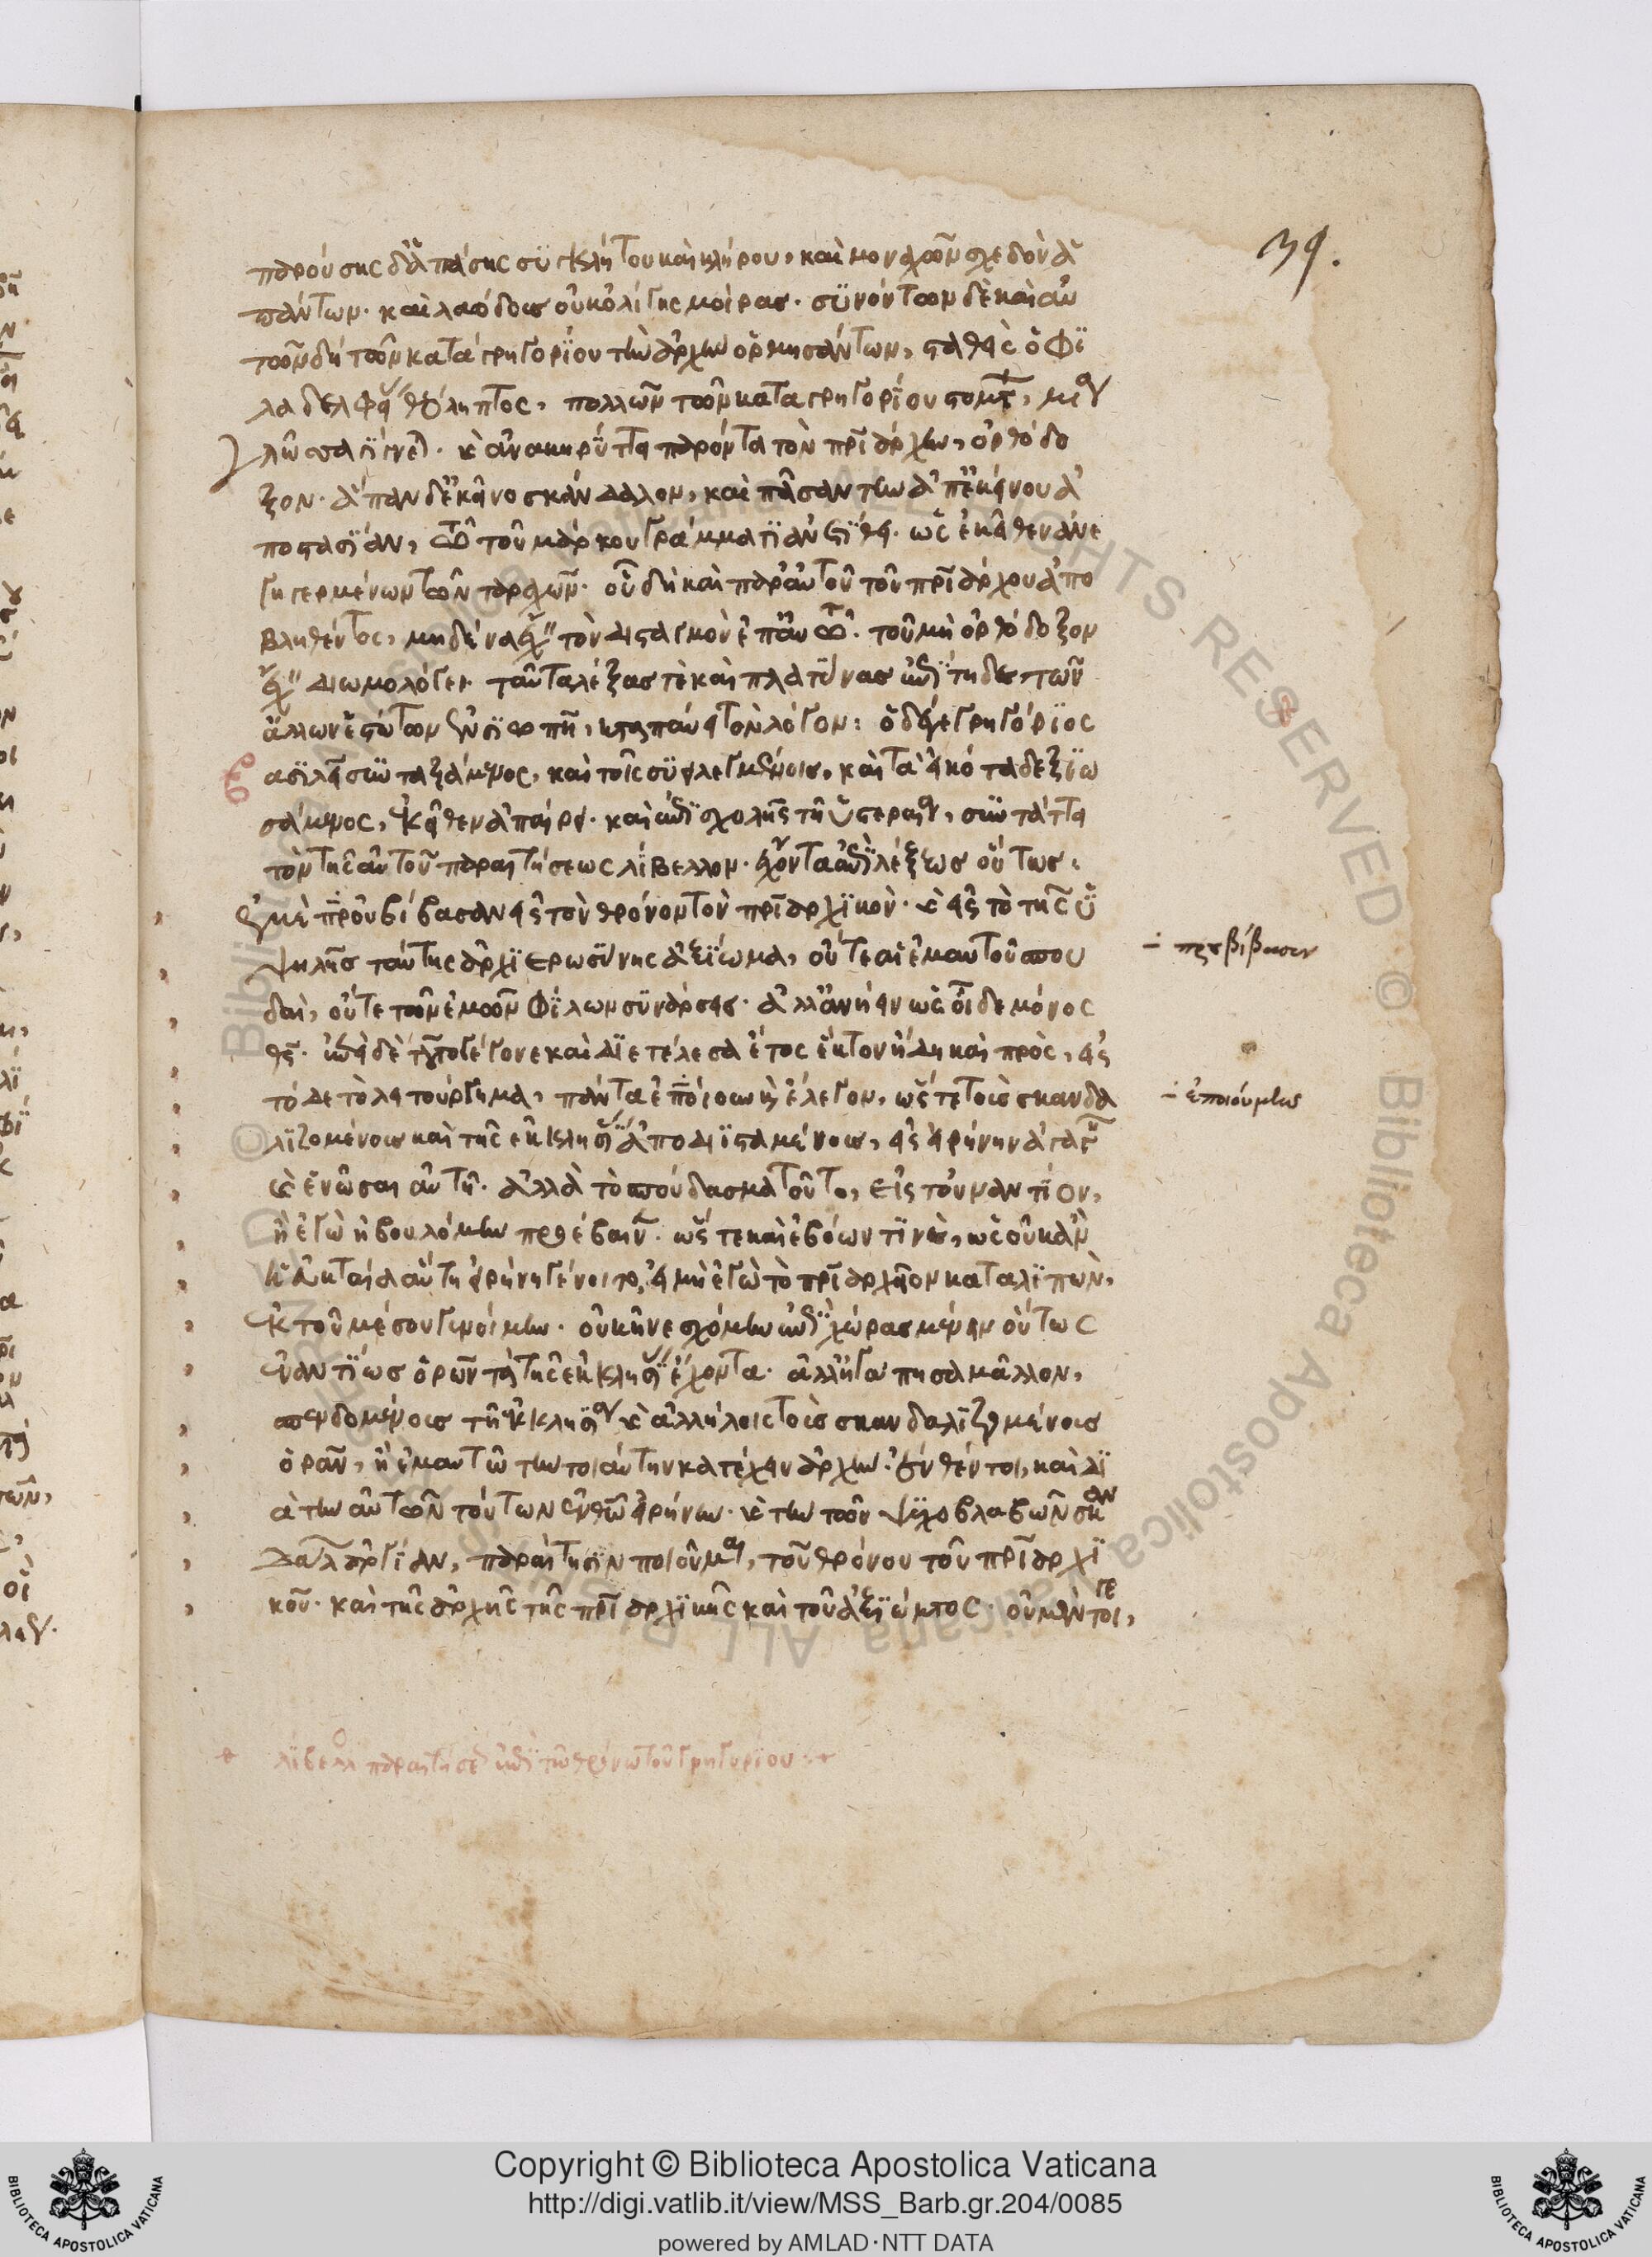 39.
παρούσης δ' ἁπάσης συγκλήτου καὶ κλήρου, καὶ μοναχῶν σχεδὸν ἁ
πάντων· καὶ λαώδους οὐκ ὀλίγης μοίρας· συνόντων δὲ καὶ αὐ
τῶν δὴ τῶν κατὰ γρηγορίου τὴν ἀρχὴν ὁρμησάντων, σταθεὶς ὁ Φι
λαδελφείας θεόληπτος, πολλῶν τῶν κατὰ γρηγορίου
ἀνακηρύττει παρόντα τὸν πριάρχην, ὀρθόδο
ξον· ἅπαν δ' ἐκεῖνο σκάνδαλον, καὶ πᾶσαν τὴν ἀπ' ἐκείνου ἀ
ποστασίαν, τοῦ μάρκου γράμμασιν ἀνατίθει· ὡς ἐκεῖθεν ἀνε
γηγερμένων τῶν ταραχῶν· οὗ δὴ καὶ παρ' αὐτοῦ τοῦ πριάρχου ἀπο
βληθέντος, μηδένα ἔχειν τὸν δισταγμὸν ἐπ' αὐτῷ τοῦ μὴ ὀρθόδοξον
ἔχειν διωμολόγει· ταῦτα λέξας τὲ καὶ πλατύνας ἐπίτηδες, τῶν
ἄλλων ἑστώτων ξὺν σιωπῇ, καταπαύει τὸν λόγον: ὁ δέ γε γρηγόριος
ἀσιλεῖ συνταξάμενος, καὶ τοῖς συνειλεγμένοις, καὶ τὰ εἰκότα δεξιω
σάμενος, ἐκεῖθεν ἀπαίρει· καὶ ἐπὶ σχολῆς τῇ ὑστεραίᾳ, συντάττει
τὸν τῆς αὐτοῦ παραιτήσεως λίβελλον· ἔχοντα ἐπὶ λέξεως οὕτως:
ἐμὲ προὐβίβασαν εἰς τὸν θρόνον τὸν πριαρχικὸν· καὶ εἰς τὸ τῆς ὑ
ψηλῆς ταύτης ἀρχιερωσύνης ἀξίωμα, οὔτε αἱ ἐμαυτοῦ σπου
δαὶ, οὔτε τῶν ἐμῶν φίλων συνάρσεις· ἀλλ' ἀνῆειν ὡς οἶδε μόνος
θς· ἐπεὶ δὲ τοῦτο γέγονε καὶ διετέλεσα ἔτος ἕκτον ἤδη καὶ πρὸς, εἰς
τόδε τὸ λειτούργημα, πάντα ἐποίουν καὶ ἔλεγον, ὥστε τοὺς σκανδα
λιζομένους καὶ τῆς ἐκκλησίας ἀποδιϊσταμένους, εἰς εἰρήνην ἀγαγεῖν
καὶ ἑνῶσαι αὐτῇ· ἀλλὰ τὸ σπούδασμα τοῦτο, εἰς τοὐναντίον,
ἢ ἐγὼ ἠβουλόμην προέβαινεν· ὥστε καὶ ἐβόων τινὲς, ὡς οὐκ ἂν
καταία αὕτη εἰρήνη γένοιτο, εἰ μὴ ἐγὼ τὸ πριαρχεῖον καταλιπὼν,
ἐκ τοῦ μέσου γενοίμην· οὐκ ἠνεσχόμην ἐπὶ χώρας μένειν οὕτως
ἐναντίως ὁρῶν τὰ τῆς ἐκκλησίας ἔχοντα· ἀλλ' ἠγάπησα μᾶλλον,
σπενδομένους τῇ ἐκκλησίᾳ καὶ ἀλλήλοις τοὺς σκανδαλιζομένους
ὁρᾶν, ἢ ἐμαυτῷ τὴν τοιαύτην κατέχειν ἀρχήν· ἔνθέν τοι, καὶ δι
ὰ τὴν αὐτῶν τούτων ἐν θῶ εἰρήνην· καὶ τὴν τῶν ψυχοβλαβῶν σκαν
δάλων ἀργίαν, παραίτησιν ποιοῦμαι, τοῦ θρόνου τοῦ πριαρχι
κοῦ· καὶ τῆς ἀρχῆς τῆς πριαρχικῆς καὶ τοῦ ἀξιώματος· οὐ μέντοι γε,
÷ προεβίβασεν
÷ ἐποιούμην
λίβελλος παραιτήσεως ἐπὶ τῶ θρόνω τοῦ γρηγορίου
Copyright © Biblioteca Apostolica Vaticana
http://digi.vatlib.it/view/MSS_Barb.gr.204/0085
powered by AMLAD·NTT DATA
BIBLIOTECA APOSTOLICA VATICANA
BIBLIOTECA APOSTOLICA VATICANA